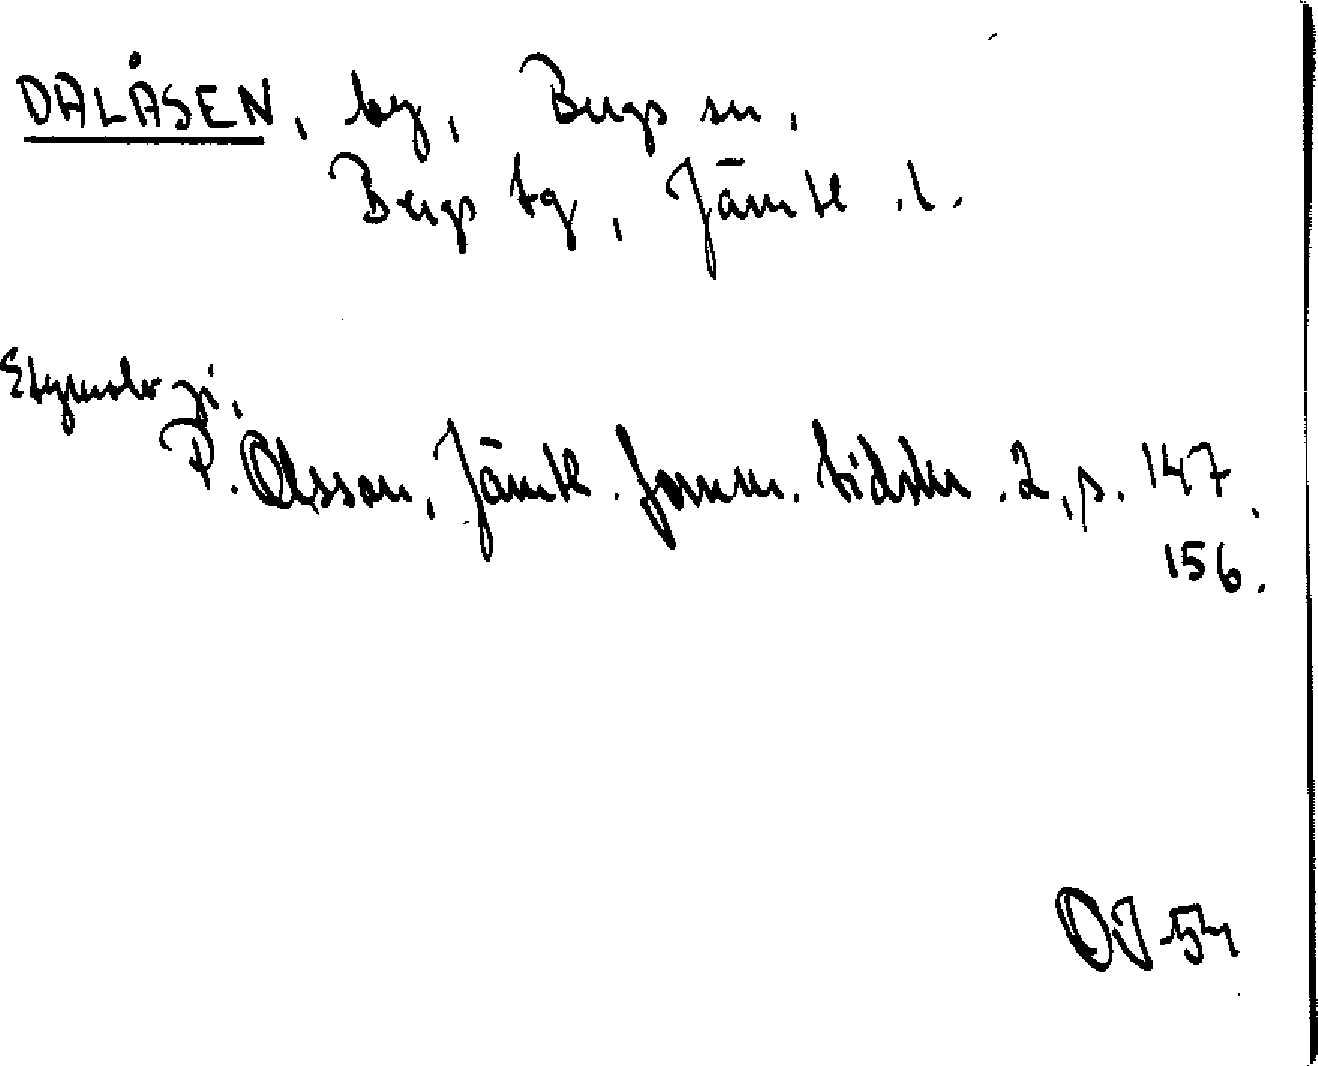 DALÅSEN, by, Bergs sn,
Bergs tg, Jämtl. l.
Etymologi.
P. Olsson, Jämtl. fornm. tidskr. 2, s. 147,
156.
OJ 54